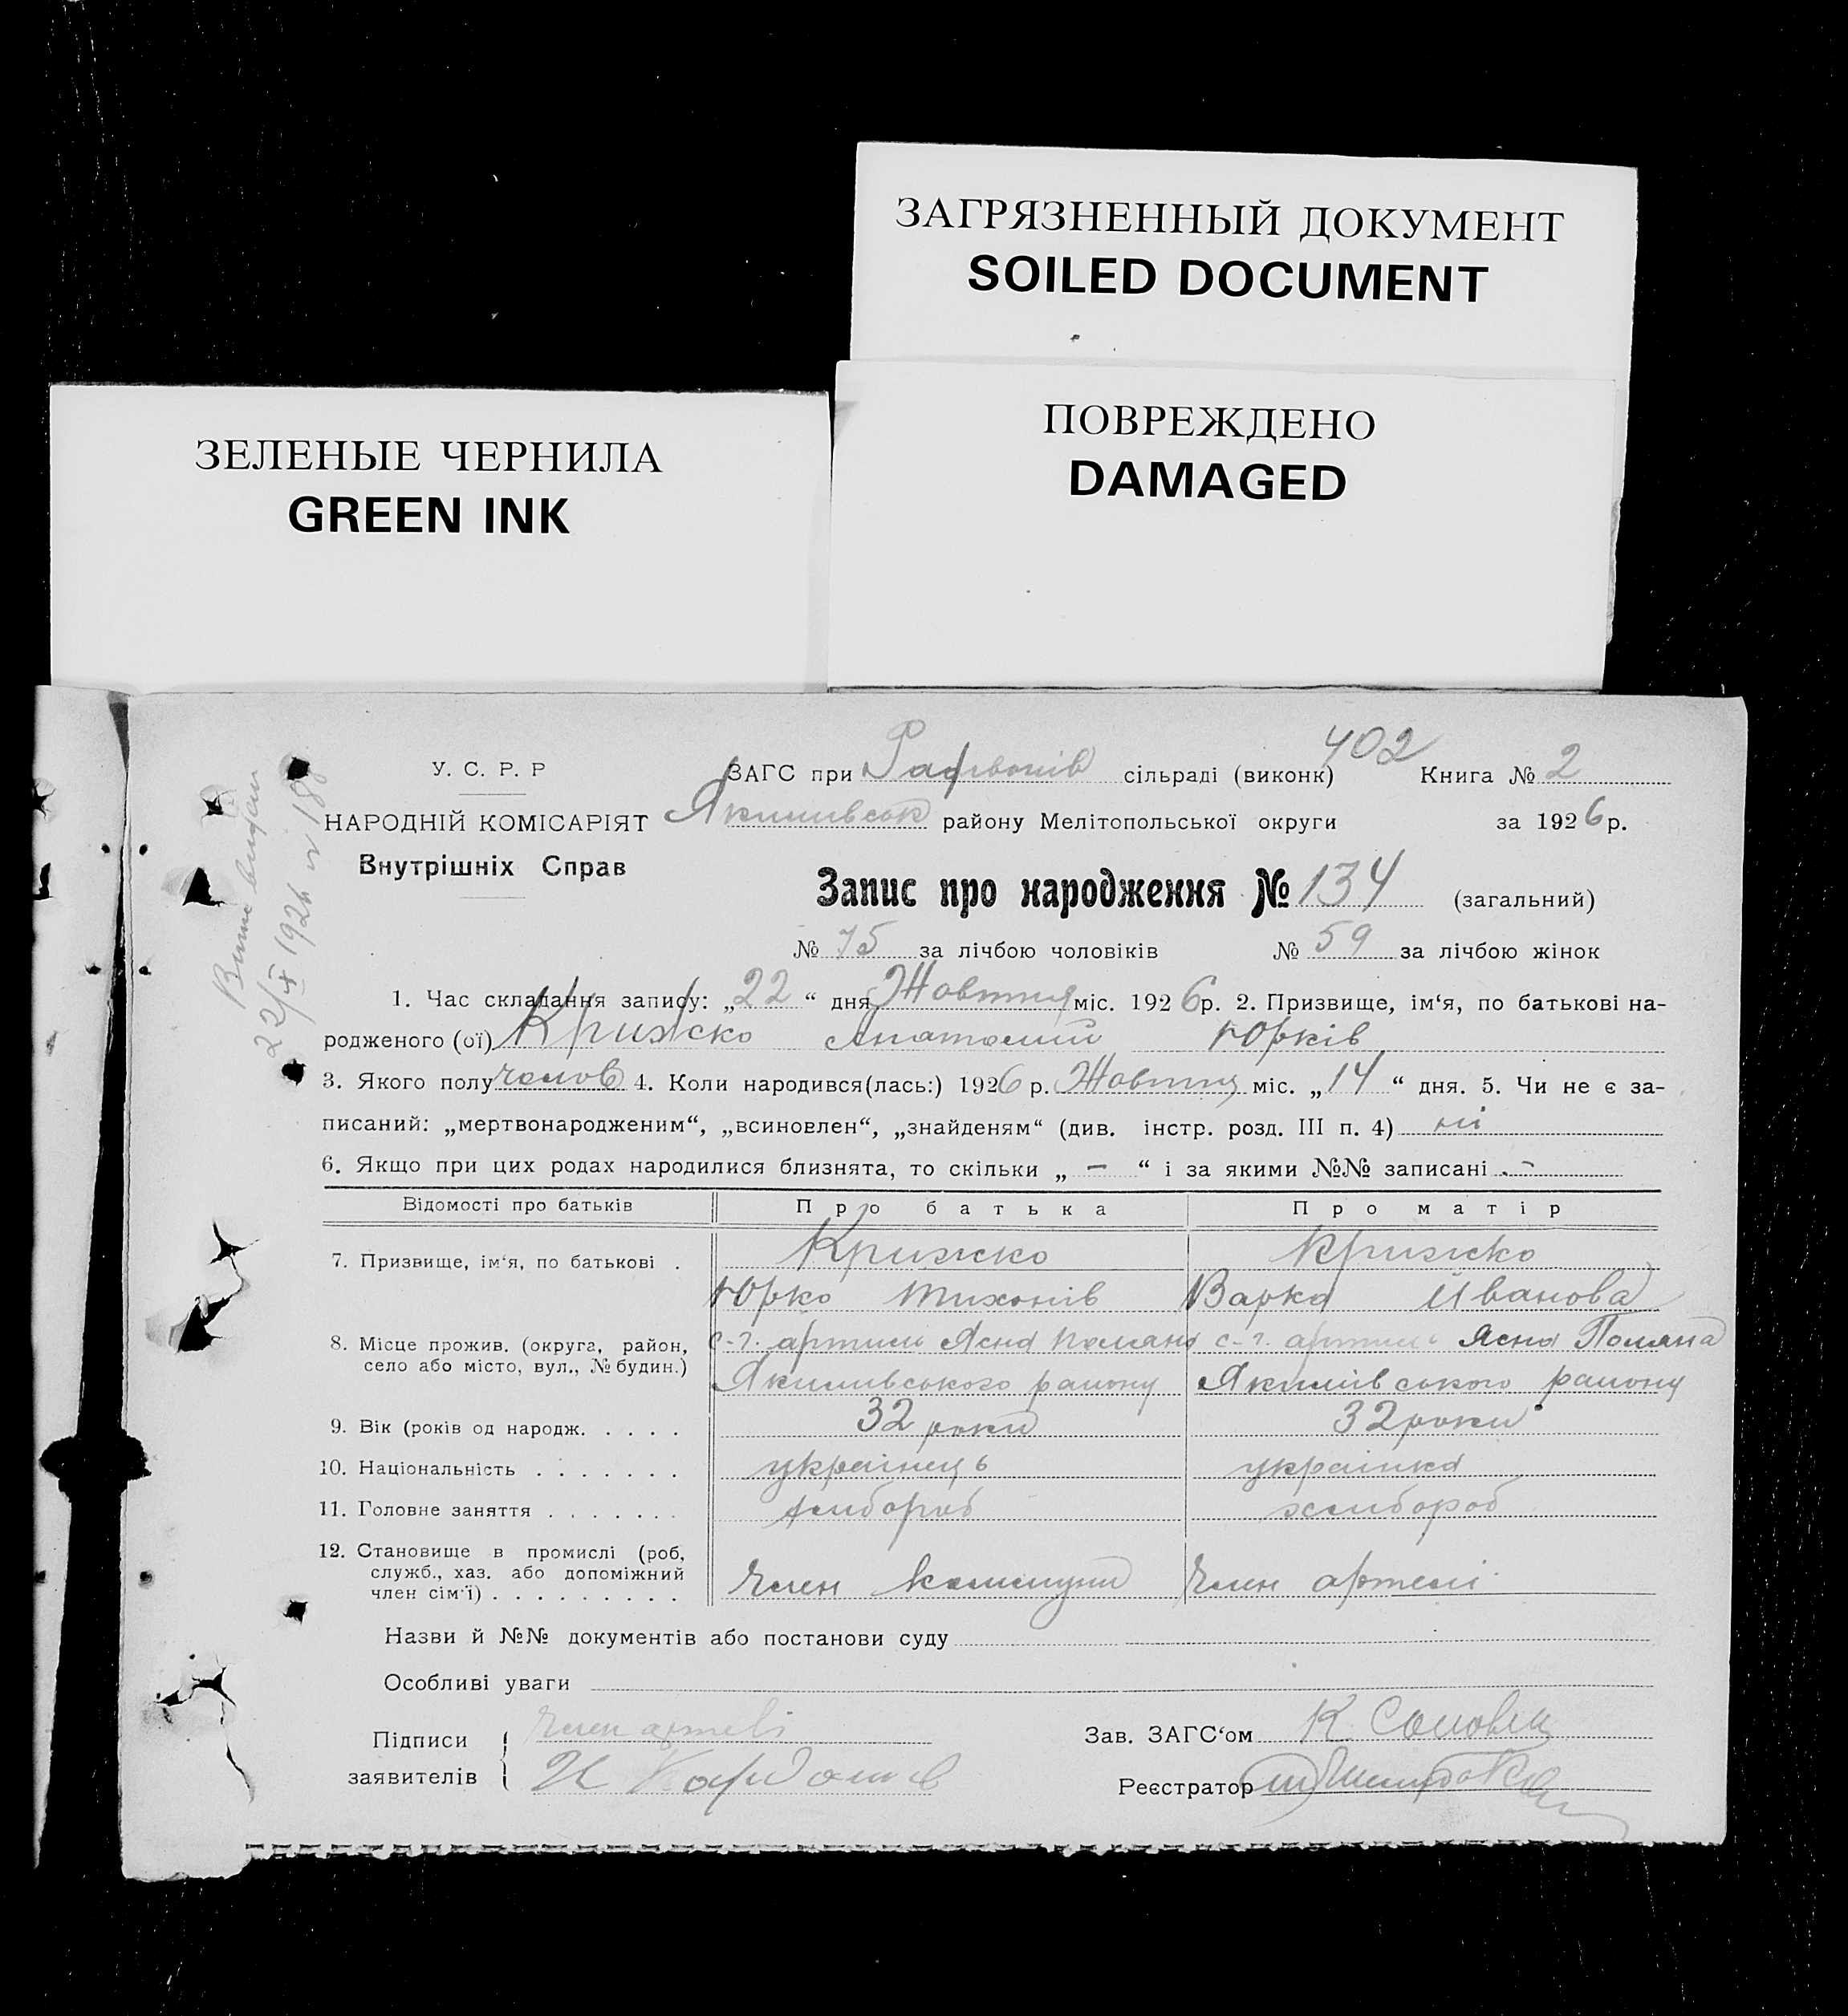 ЗАГРЯЗНЕННЫЙ ДОКУМЕНТ
SOILED DOCUMENT
ПОВРЕЖДЕНО
DAMAGED
ЗЕЛЕНЫЕ ЧЕРНИЛА
GREEN INK
402
У. С. Р. Р
НАРОДНІЙ КОМІСАРІЯТ
Внутрішніх Справ
ЗАГС при сільраді (виконк) Книга № 2
Якимівськ району Мелітопольської округи за 1926 р.
Запис про народження № 134 (загальний)
№ 75 за лічбою чоловіків № 59 за лічбою жінок
22/X 1926 № 188
1. Час складання запису: „22“ дня Жовтня міс. 1926 р. 2. Призвище, ім‘я, по батькові на-
родженого (ої) Крижско Анатолий Юрків
3. Якого полу чолов 4. Коли народився(лась:) 1926 р. Жовтня міс. „14“ дня. 5. Чи не є за-
писаний: „мертвонародженим“, „всиновлен“, „знайденям“ (див. інстр. розд. III п. 4) ні
6. Якщо при цих родах народилися близнята, то скільки „ – “ і за якими №№ записані . -
Відомості про батьків Про батька Про матір
7. Призвище, ім‘я, по батькові . Крижско Крижско
Юрко Тихонів Варка Иванова
8. Місце прожив. (округа, район, село або місто, вул., № будин.) с-г. артиль Ясна Поляна с-г. артиль Ясна Поляна
Якимивського району Якимівського району
9. Вік (років од народж. . . . . 32 роки 32 роки
10. Національність . . . . . . . українець українка
11. Головне заняття . . . . . . . хлибороб хлибороб
12. Становище в промислі (роб, служб., хаз. або допоміжний член сім‘ї) . . . . . . . . . Член комуни Член артелі
Назви й №№ документів або постанови суду
Особливі уваги
Підписи заявителів Член артелі
Зав. ЗАГС‘ом К.
Реєстратор